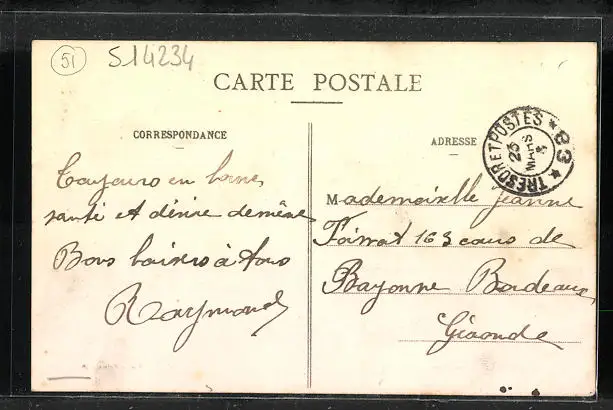 51 S14234
CARTE POSTALE
CORRESPONDANCE
ADRESSE
TRESOR ET POSTES * 83 *
25
MARS
Toujours en bonne
santé et désire de même
Bons baisers à tous
Raymond
Mademoiselle Jeanne
163 cours de
Bayonne Bordeaux
Gironde